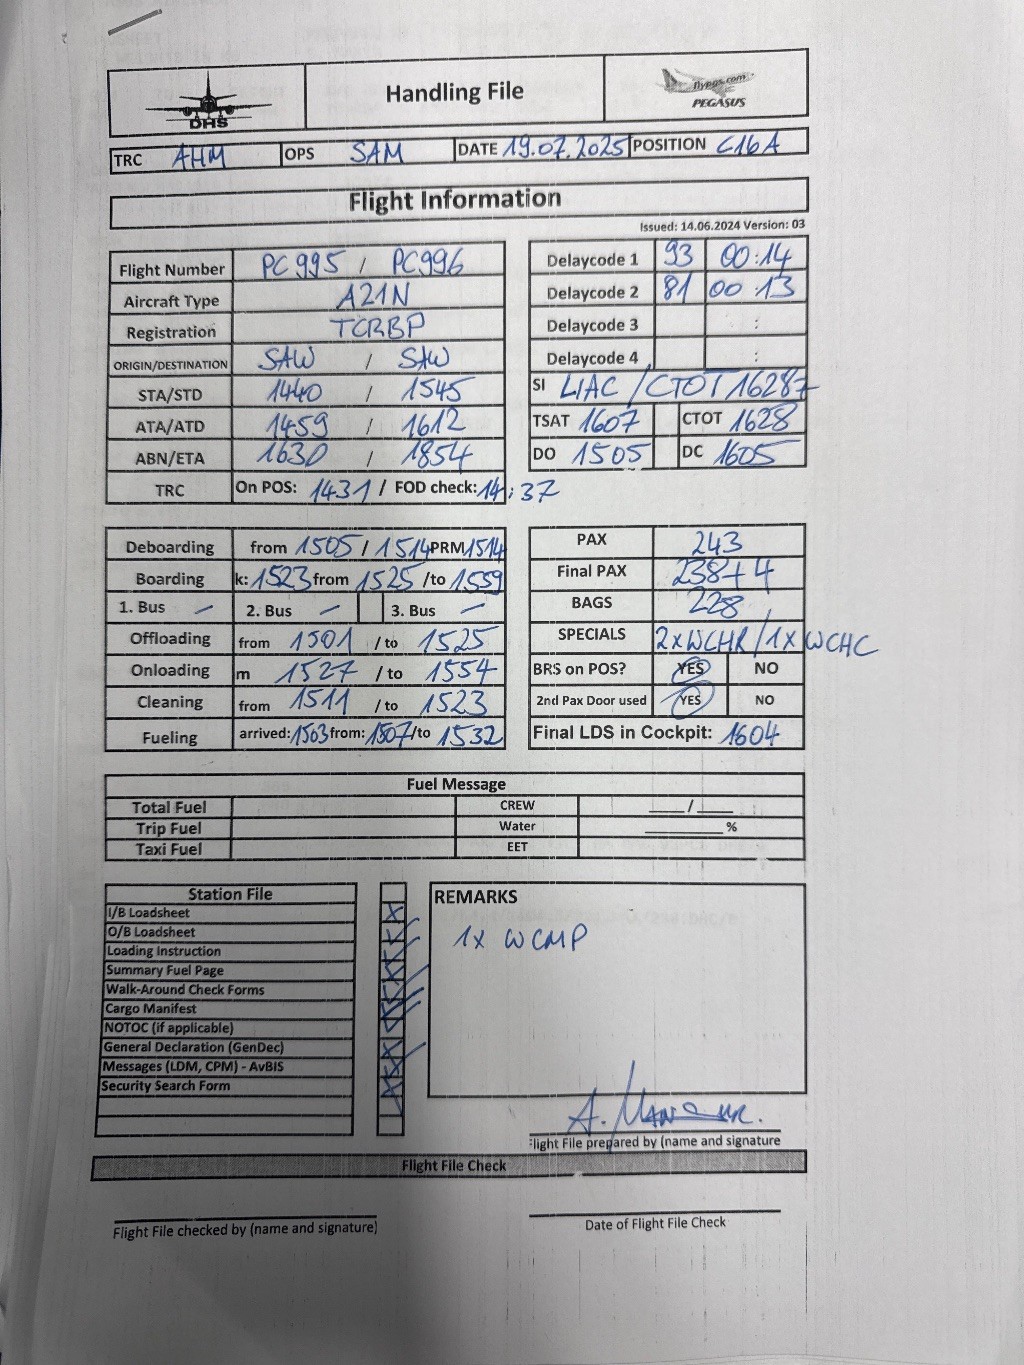 DHS
Handling File
flypgs.com
PEGASUS
TRC AHM OPS SAM DATE 19.07.2025 POSITION C16A
Flight Information
Issued: 14.06.2024 Version: 03
Flight Number PC995 / PC996
Aircraft Type A21N
Registration TCRBP
ORIGIN/DESTINATION SAW / SAW
STA/STD 1440 / 1545
ATA/ATD 1459 / 1612
ABN/ETA 1630 / 1854
TRC On POS: 1431 / FOD check: 14:37
Delaycode 1 93 00:14
Delaycode 2 81 00:13
Delaycode 3 :
Delaycode 4 :
SI LIAC /CTOT 1628z
TSAT 1607 CTOT 1628
DO 1505 DC 1605
Deboarding from 1505 / 1514 PRM 1514
Boarding k: 1523 from 1525 /to 1559
1. Bus – 2. Bus – 3. Bus –
Offloading from 1501 / to 1525
Onloading m 1527 / to 1554
Cleaning from 1511 / to 1523
Fueling arrived: 1503 from: 1507/to 1532
PAX 243
Final PAX 238+4
BAGS 228
SPECIALS 2xWCHR/1xWCHC
BRS on POS? YES NO
2nd Pax Door used YES NO
Final LDS in Cockpit: 1604
Fuel Message
Total Fuel CREW ____/____
Trip Fuel Water ________%
Taxi Fuel EET
Station File
I/B Loadsheet X
O/B Loadsheet
Loading Instruction
Summary Fuel Page
Walk-Around Check Forms
Cargo Manifest
NOTOC (if applicable)
General Declaration (GenDec)
Messages (LDM, CPM) - AvBIS
Security Search Form
REMARKS
1x WCMP
A.
Flight File prepared by (name and signature
Flight File Check
Flight File checked by (name and signature)
Date of Flight File Check